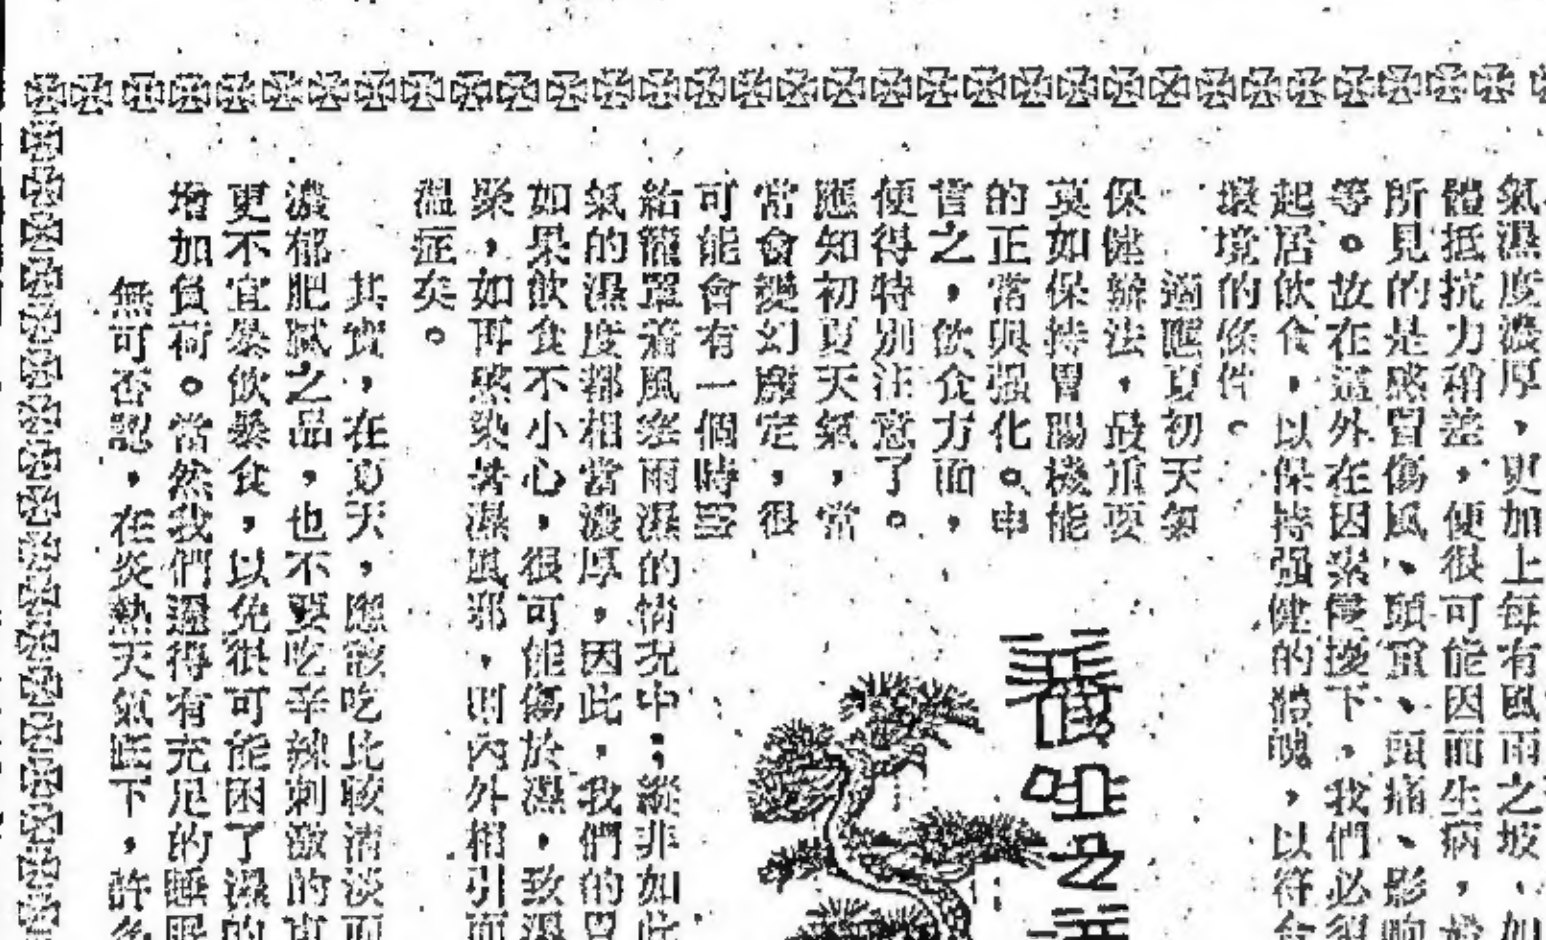 氣濕度濃厚，更加上每有風雨之坡、如
體抵抗力稍差，便很可能因而生病，
所見的是感冒傷風、頭重、頭痛、影响
等。故在這外在因素侵擾下，我們必須
起居飲食，以保持强健的體魄，以符合
環境的條件。
適應夏初天氣
保健辦法，最重要
莫如保持胃腸機能
的正常與强化。申
言之，飲食方面，
便得特別注意了。
應知初夏天氣，常
常會變幻靡定，很
可能會有一個時
給籠罩着風
雨濕的情况中；縱非如此
氣的濕度都相當濃厚，因此，我們的胃
如果飲食不小心，很可能傷於濕，致濕
聚，如再感染着濕風邪，則內外相引而
溫症矣。
其實，在夏天，應該吃比較清淡而
濃郁肥膩之品，也不要吃辛辣刺激的東
更不宜暴飲暴食，以免很可能困了濕的
增加負荷。當然我們還得有充足的睡眠
無可否認，在炎熱天氣底下，許多
養生之